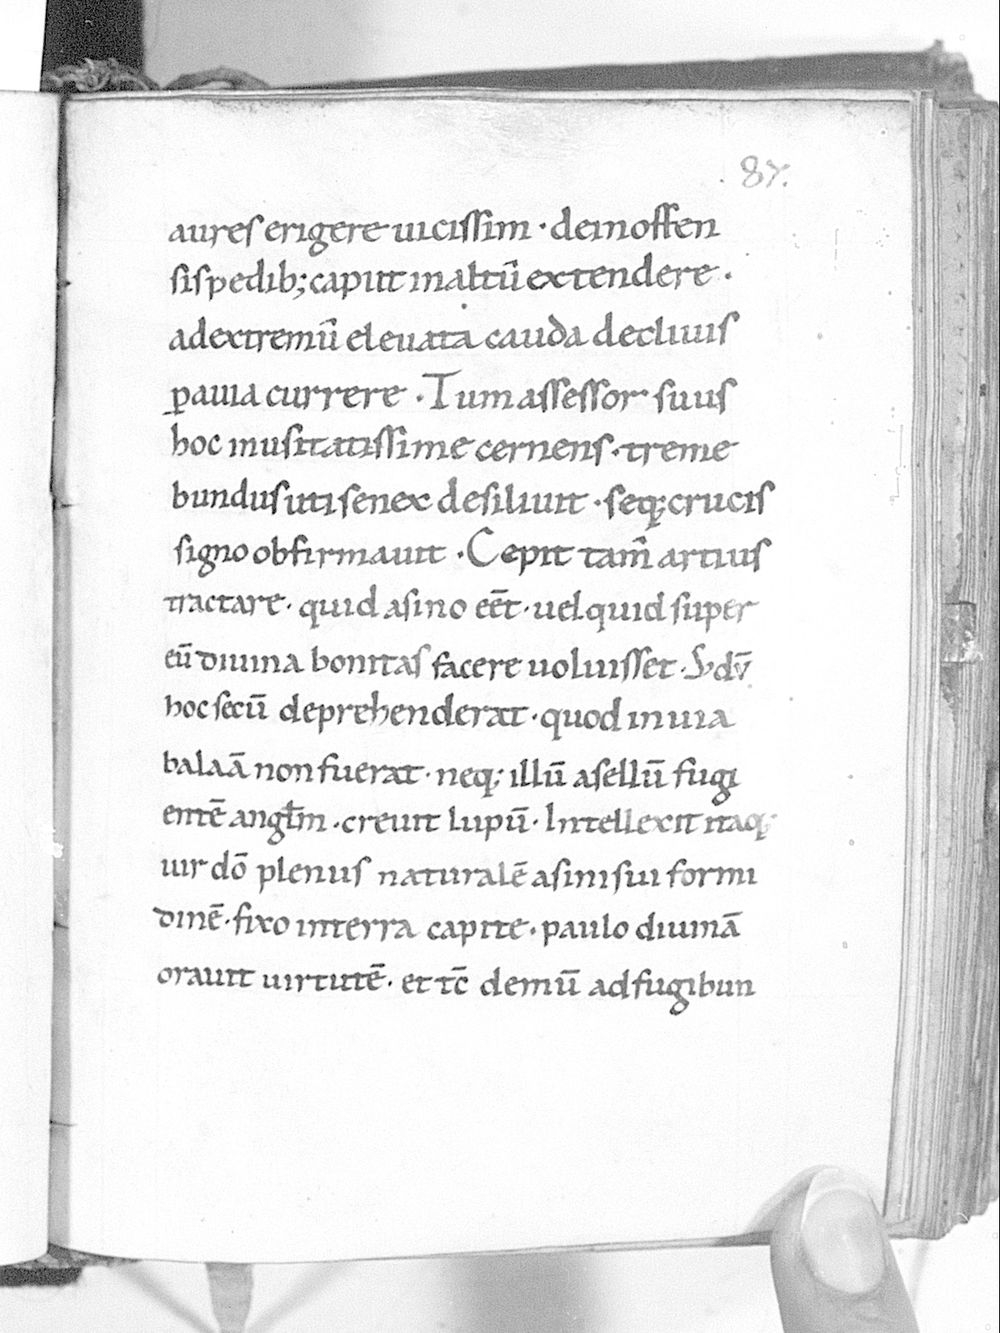 87.
aures erigere uicissim · dein offen
sis pedib; caput in altū extendere ·
ad extremū eleuata cauda decliuis
ꝑ auia currere · Tum assessor suus
hoc inusitatissime cernens · treme
bundus uti senex desiliuit · seq; crucis
signo obfirmauit · Cepit tam̄ artius
tractare · quid asino eēt · uel quid super
eū diuina bonitas facere uoluisset · S; dū
hoc secū deprehenderat · quod in uia
balaā non fuerat · neq; illū asellū fugi
entē angłm · creuit lupū · Intellexit itaq;
uir dō plenus naturalē asini sui formi
dinē · fixo in terra capite · paulo diuinā
orauit uirtutē · et tc̄ demū ad fugibun